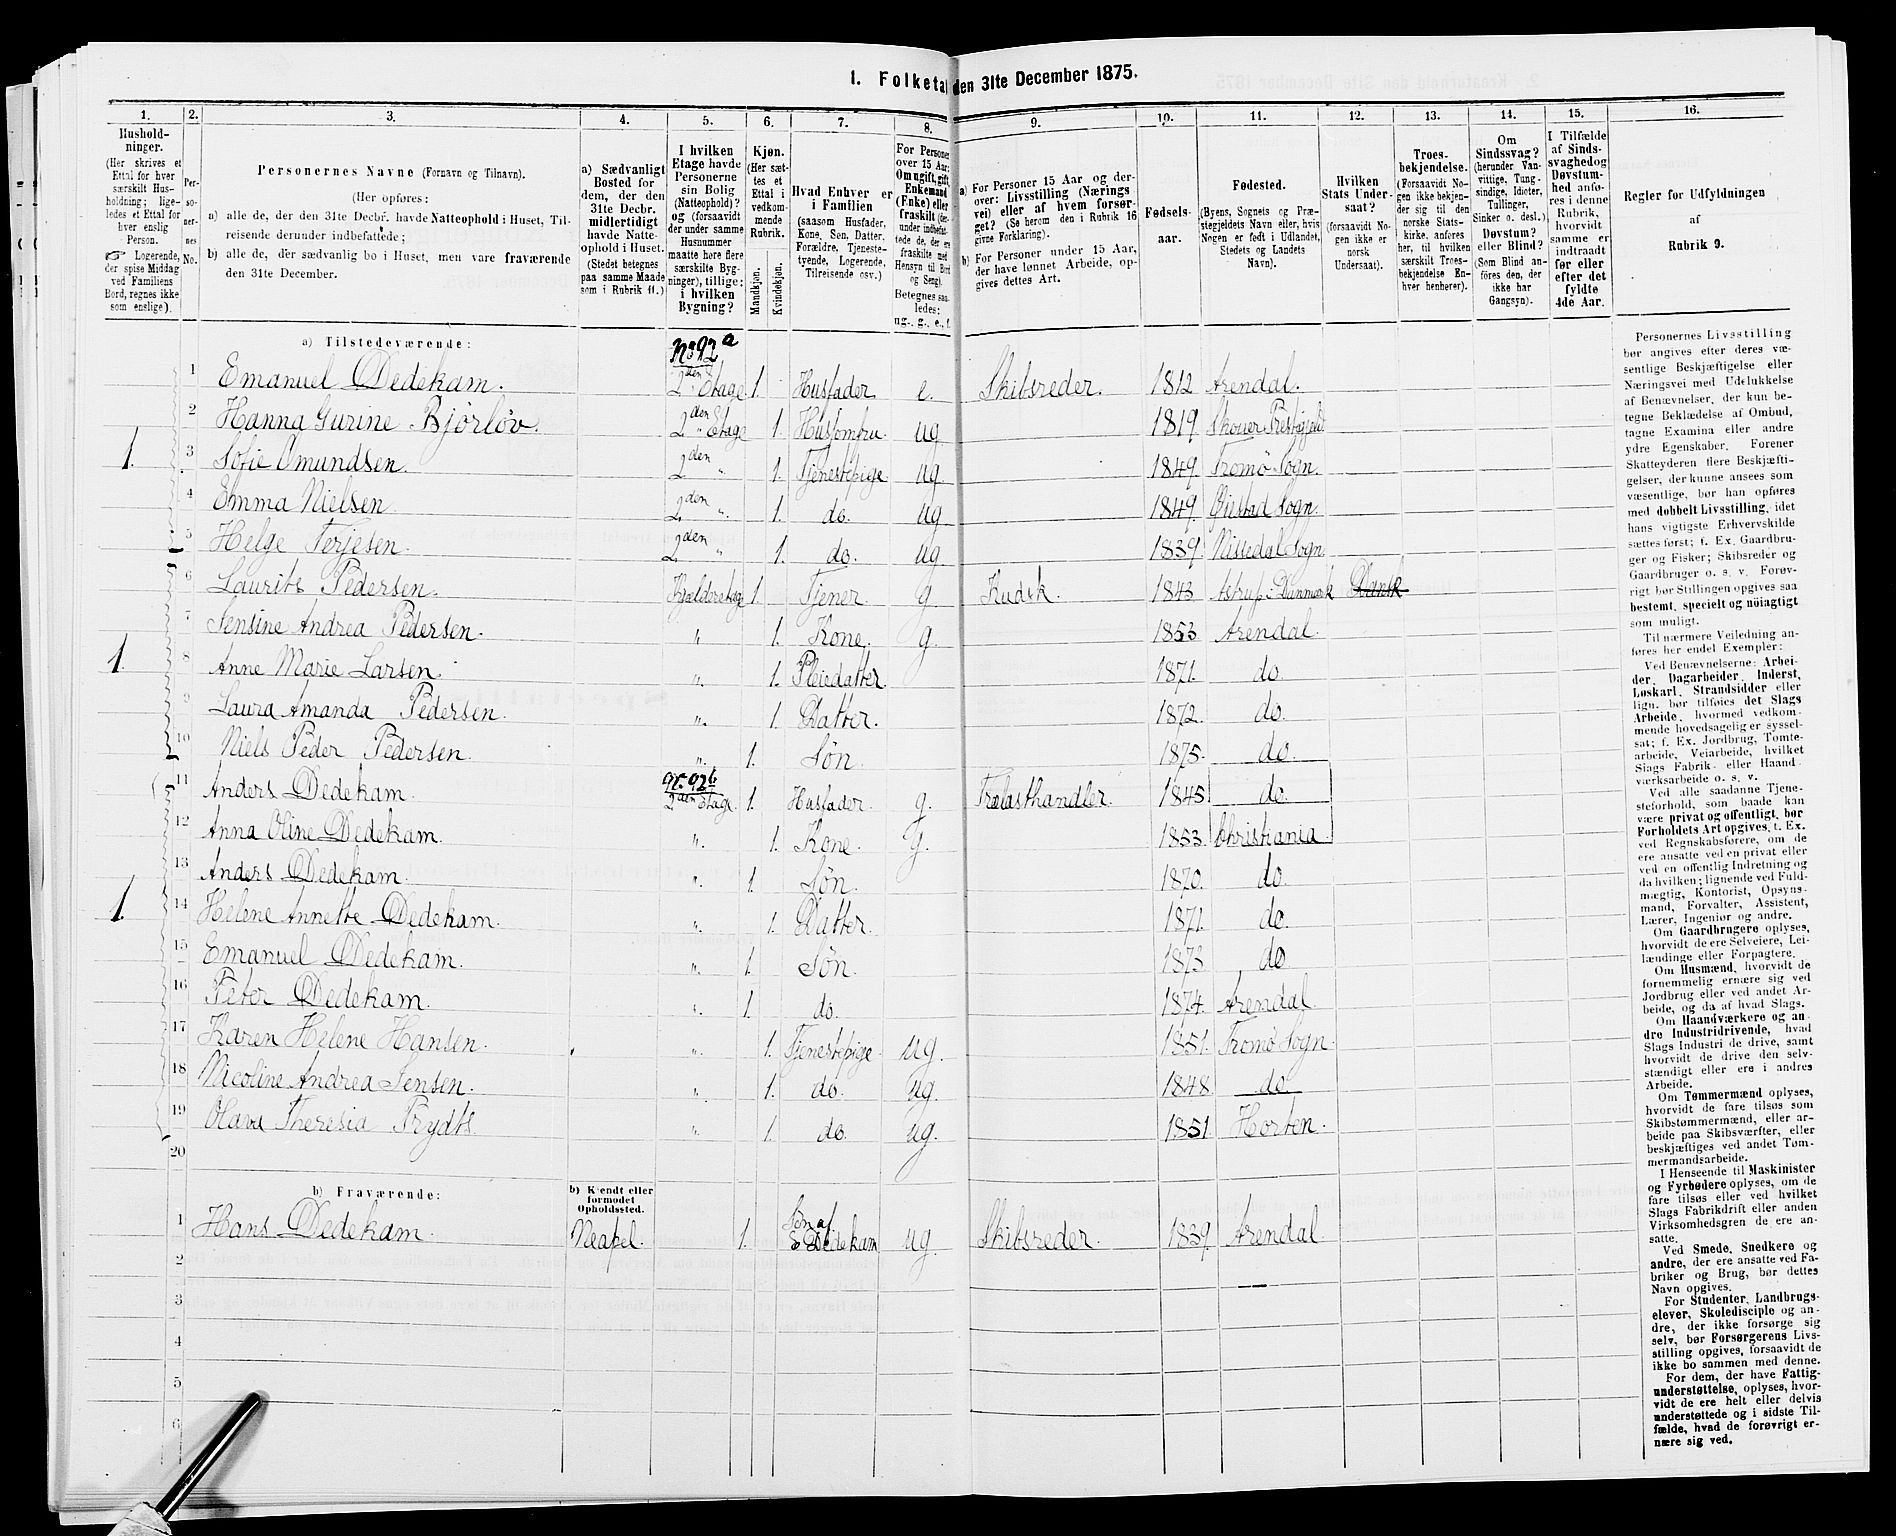 1. Folketal den 31te December 1875.
1. 2. 3. 4. 5. 6. 7. 8. 9. 10. 11. 12. 13. 14. 15. 16.
Hushold-
ninger.
(Her skrives et
Ettal for hver
særskilt Hus-
holdning; lige-
ledes et Ettal for
hver enslig
Person.
☞ Logerende,
der spise Middag
ved Familiens
Bord, regnes ikke
som enslige).
Per-
so-
ner-
nes
No.
Personernes Navne (Fornavn og Tilnavn).
(Her opføres:
a) alle de, der den 31te Decbr. havde Natteophold i Huset, Til-
reisende derunder indbefattede;
b) alle de, der sædvanlig bo i Huset, men vare fraværende
den 31te December.
a) Sædvanligt
Bosted for
dem, der den
31te Decbr.
midlertidigt
havde Natte-
ophold i Huset.
(Stedet betegnes
paa samme Maade
som i Rubrik 11.)
I hvilken
Etage havde
Personerne
sin Bolig
(Natteophold)?
og (forsaavidt
der under samme
Husnummer
maatte høre flere
særskilte Byg-
ninger), tillige:
i hvilken
Bygning?
Kjøn.
(Her sæt-
tes et
Ettal i
vedkom-
mende
Rubrik.
Mandkjøn.
Kvindekjøn.
Hvad Enhver er
i Familien
(saasom Husfader,
Kone, Søn, Datter,
Forældre, Tjeneste-
tyende, Logerende,
Tilreisende osv.)
For Personer
over 15 Aar:
Om ugift, gift,
Enkemand
(Enke) eller
fraskilt (der-
under indbefat-
tede de, der ere
fraskilte med
Hensyn til Bord
og Seng).
Betegnes saa-
ledes:
ug., g., e., f.
a) For Personer 15 Aar og der-
over: Livsstilling (Nærings-
vei) eller af hvem forsør-
get? (Se herom den i Rubrik 16
givne Forklaring).
b) For Personer under 15 Aar,
der have lønnet Arbeide, op-
gives dettes Art.
Fødsels-
aar.
Fødested.
(Byens, Sognets og Præ-
stegjeldets Navn eller, hvis
Nogen er født i Udlandet,
Stedets og Landets
Navn).
Hvilken
Stats Under-
saat?
(forsaavidt No-
gen ikke er
norsk
Undersaat).
Troes-
bekjendelse.
(Forsaavidt No-
gen ikke bekjen-
der sig til den
norske Stats-
kirke, anføres
her, til hvilken
særskilt Troes-
bekjendelse En-
hver henhører).
Om
Sindssvag?
(herunder Van-
vittige, Tung-
sindige, Idioter,
Tullinger,
Sinker o. desl.).
Døvstum?
eller Blind?
(Som Blind an-
føres den, der
ikke har
Gangsyn).
I Tilfælde
af Sinds-
svaghedog
Døvstum-
hed anfø-
res i denne
Rubrik,
hvorvidt
samme er
indtraadt
før eller
efter det
fyldte
4de Aar.
Regler for Udfyldningen
af
Rubrik 9.
a) Tilstedeværende: No 92 a
1 Emanuel Dedekam. 2den Etage 1. Husfader e. Skibsreder. 1812 Arendal.
2 Hanna Gurine Bjørløv. 2den Etage 1. Husjomfru ug 1819 Præstegjeld
1. 3 Sofie Omundsen. 2den " 1. Tjenestepige ug. 1849. Tromø Sogn.
4 Emma Nielsen 2den " 1. do. ug 1849. Øiestad Sogn.
5 Helge Terjesen. 2den " 1. do. ug 1839. Nissedal Sogn
6 Laurits Pedersen. Kjælderetage 1. Tjener. g Kudsk. 1843 Astrup i Danmark Dansk
7 Jensine Andrea Pedersen. " 1. Kone. g 1853 Arendal.
1. 8 Anne Marie Larsen " 1. Pleiedatter 1871. do
9 Laura Amanda Pedersen. " 1. Datter. 1872. do.
10 Niels Peder Pedersen. " 1. Søn 1875. do.
11 Anders Dedekam. No. 92b 2den Etage 1. Husfader. g. Trælasthandler. 1845. do.
12 Anna Oline Dedekam. " 1. Kone. g. 1853. Christiania.
13 Anders Dedekam. " 1. Søn. 1870. do
1. 14 Helene Annette Dedekam. " 1. Datter. 1871. do.
15 Emanuel Dedekam. " 1. Søn. 1873 do
16 Peter Dedekam. " 1. do. 1874. Arendal.
17 Karen Helene Hansen. " 1. Tjenestepige. ug. 1851. Tromø Sogn.
18 Nicoline Andrea Jensen. " 1. do. ug. 1848 do
19 Olava Theresia Frydts. " 1. do. ug. 1851 Horten.
20
b) Fraværende: b) Kjendt eller
formodet
Opholdssted.
1 Hans Dedekam. Neapel. 1. Søn af E Dedekam ug Skibsreder. 1839. Arendal
2
3
4
5
6
Personernes Livsstilling
bør angives efter deres væ-
sentlige Beskjæftigelse eller
Næringsvei med Udelukkelse
af Benævnelser, der kun be-
tegne Beklædelse af Ombud,
tagne Examina eller andre
ydre Egenskaber. Forener
Skatteyderen flere Beskjæfti-
gelser, der kunne ansees som
væsentlige, bør han opføres
med dobbelt Livsstilling, idet
hans vigtigste Erhvervskilde
sættes først; f. Ex. Gaardbru-
ger og Fisker; Skibsreder og
Gaardbruger o. s. v. Forøv-
rigt bør Stillingen opgives saa
bestemt, specielt og nøiagtigt
som muligt.
Til nærmere Veiledning an-
føres her endel Exempler:
Ved Benævnelserne: Arbei-
der, Dagarbeider, Inderst,
Løskarl, Strandsidder eller
lign. bør tilføies det Slags
Arbeide, hvormed vedkom-
mende hovedsagelig er syssel-
sat; f. Ex. Jordbrug, Tomte-
arbeide, Veiarbeide, hvilket
Slags Fabrik- eller Haand-
værksarbeide o. s. v.
Ved alle saadanne Tjene-
steforhold, som baade kan
være privat og offentligt, bør
Forholdets Art opgives, t. Ex.
ved Regnskabsførere, om de
ere ansatte ved en privat eller
ved en offentlig Indretning og
da hvilken; lignende ved Fuld-
mægtig, Kontorist, Opsyns-
mand, Forvalter, Assistent,
Lærer, Ingeniør og andre.
Om Gaardbrugere oplyses,
hvorvidt de ere Selveiere, Lei-
lændinge eller Forpagtere.
Om Husmænd, hvorvidt de
fornemmelig ernære sig ved
Jordbrug eller ved andet Ar-
beide, og da af hvad Slags.
Om Haandværkere og an-
dre Industridrivende, hvad
Slags Industri de drive, samt
hvorvidt de drive den selv-
stændigt eller ere i andres
Arbeide.
Om Tømmermænd oplyses,
hvorvidt de fare tilsøs som
Skibstømmermænd, eller ar-
beide paa Skibsværfter, eller
beskjæftiges ved andet Tøm-
mermandsarbeide.
I Henseende til Maskinister
og Fyrbødere oplyses, om de
fare tilsøs eller ved hvilket
Slags Fabrikdrift eller anden
Virksomhedsgren de ere an-
satte.
Ved Smede, Snedkere og
andre, der ere ansatte ved Fa-
briker og Brug, bør dettes
Navn opgives.
For Studenter, Landbrugs-
elever, Skoledisciple og an-
dre, der ikke forsørge sig
selv, bør Forsørgerens Livs-
stilling opgives, forsaavidt de
ikke bo sammen med denne.
For dem, der have Fattig-
understøttelse, oplyses, hvor-
vidt de ere helt eller delvis
understøttede og i sidste Til-
fælde, hvad de forøvrigt er-
nære sig ved.